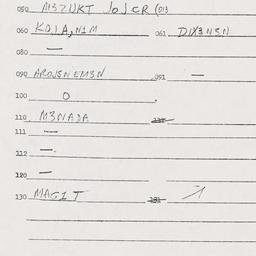 050 M3ZUKT JOJCR (013
060 KOJA,N1M 061 DIX3NSN
080 —
090 AROJSNEM3N 091 —
100 O
110 M3NAJA
111 —
112 —
120 —
130 MAG1T